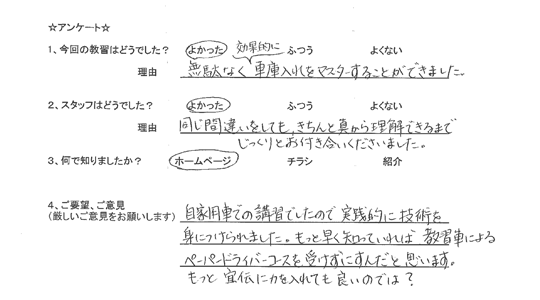 ☆アンケート☆
1、今回の教習はどうでした？ よかった 効果的に ふつう よくない
理由 無駄なく車庫入れをマスターすることができました。
2、スタッフはどうでした？ よかった ふつう よくない
理由 同じ間違いをしても、きちんと真から理解できるまで
じっくりとお付き合いくださいました。
3、何で知りましたか？ ホームページ チラシ 紹介
4、ご要望、ご意見
(厳しいご意見をお願いします) 自家用車での講習でしたので実践的に技術を
身につけられました。もっと早く知っていれば教習車による
ペーパードライバーコースを受けずにすんだと思います。
もっと宣伝に力を入れても良いのでは？